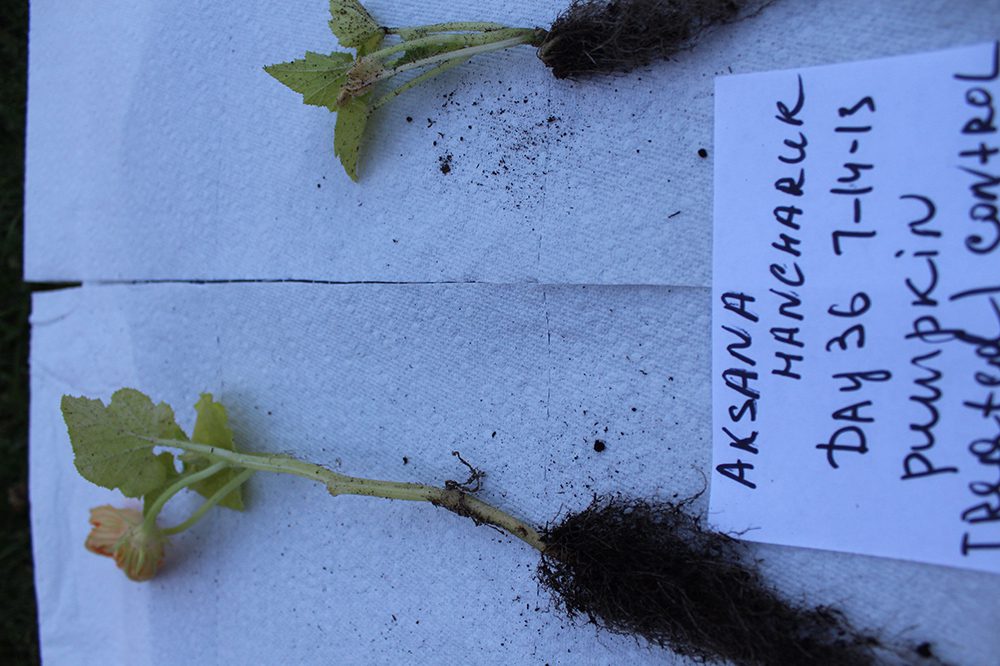 AKSANA
MANCHARUK
DAY 36 7-14-13
pumpkin
TReated / CONTROL